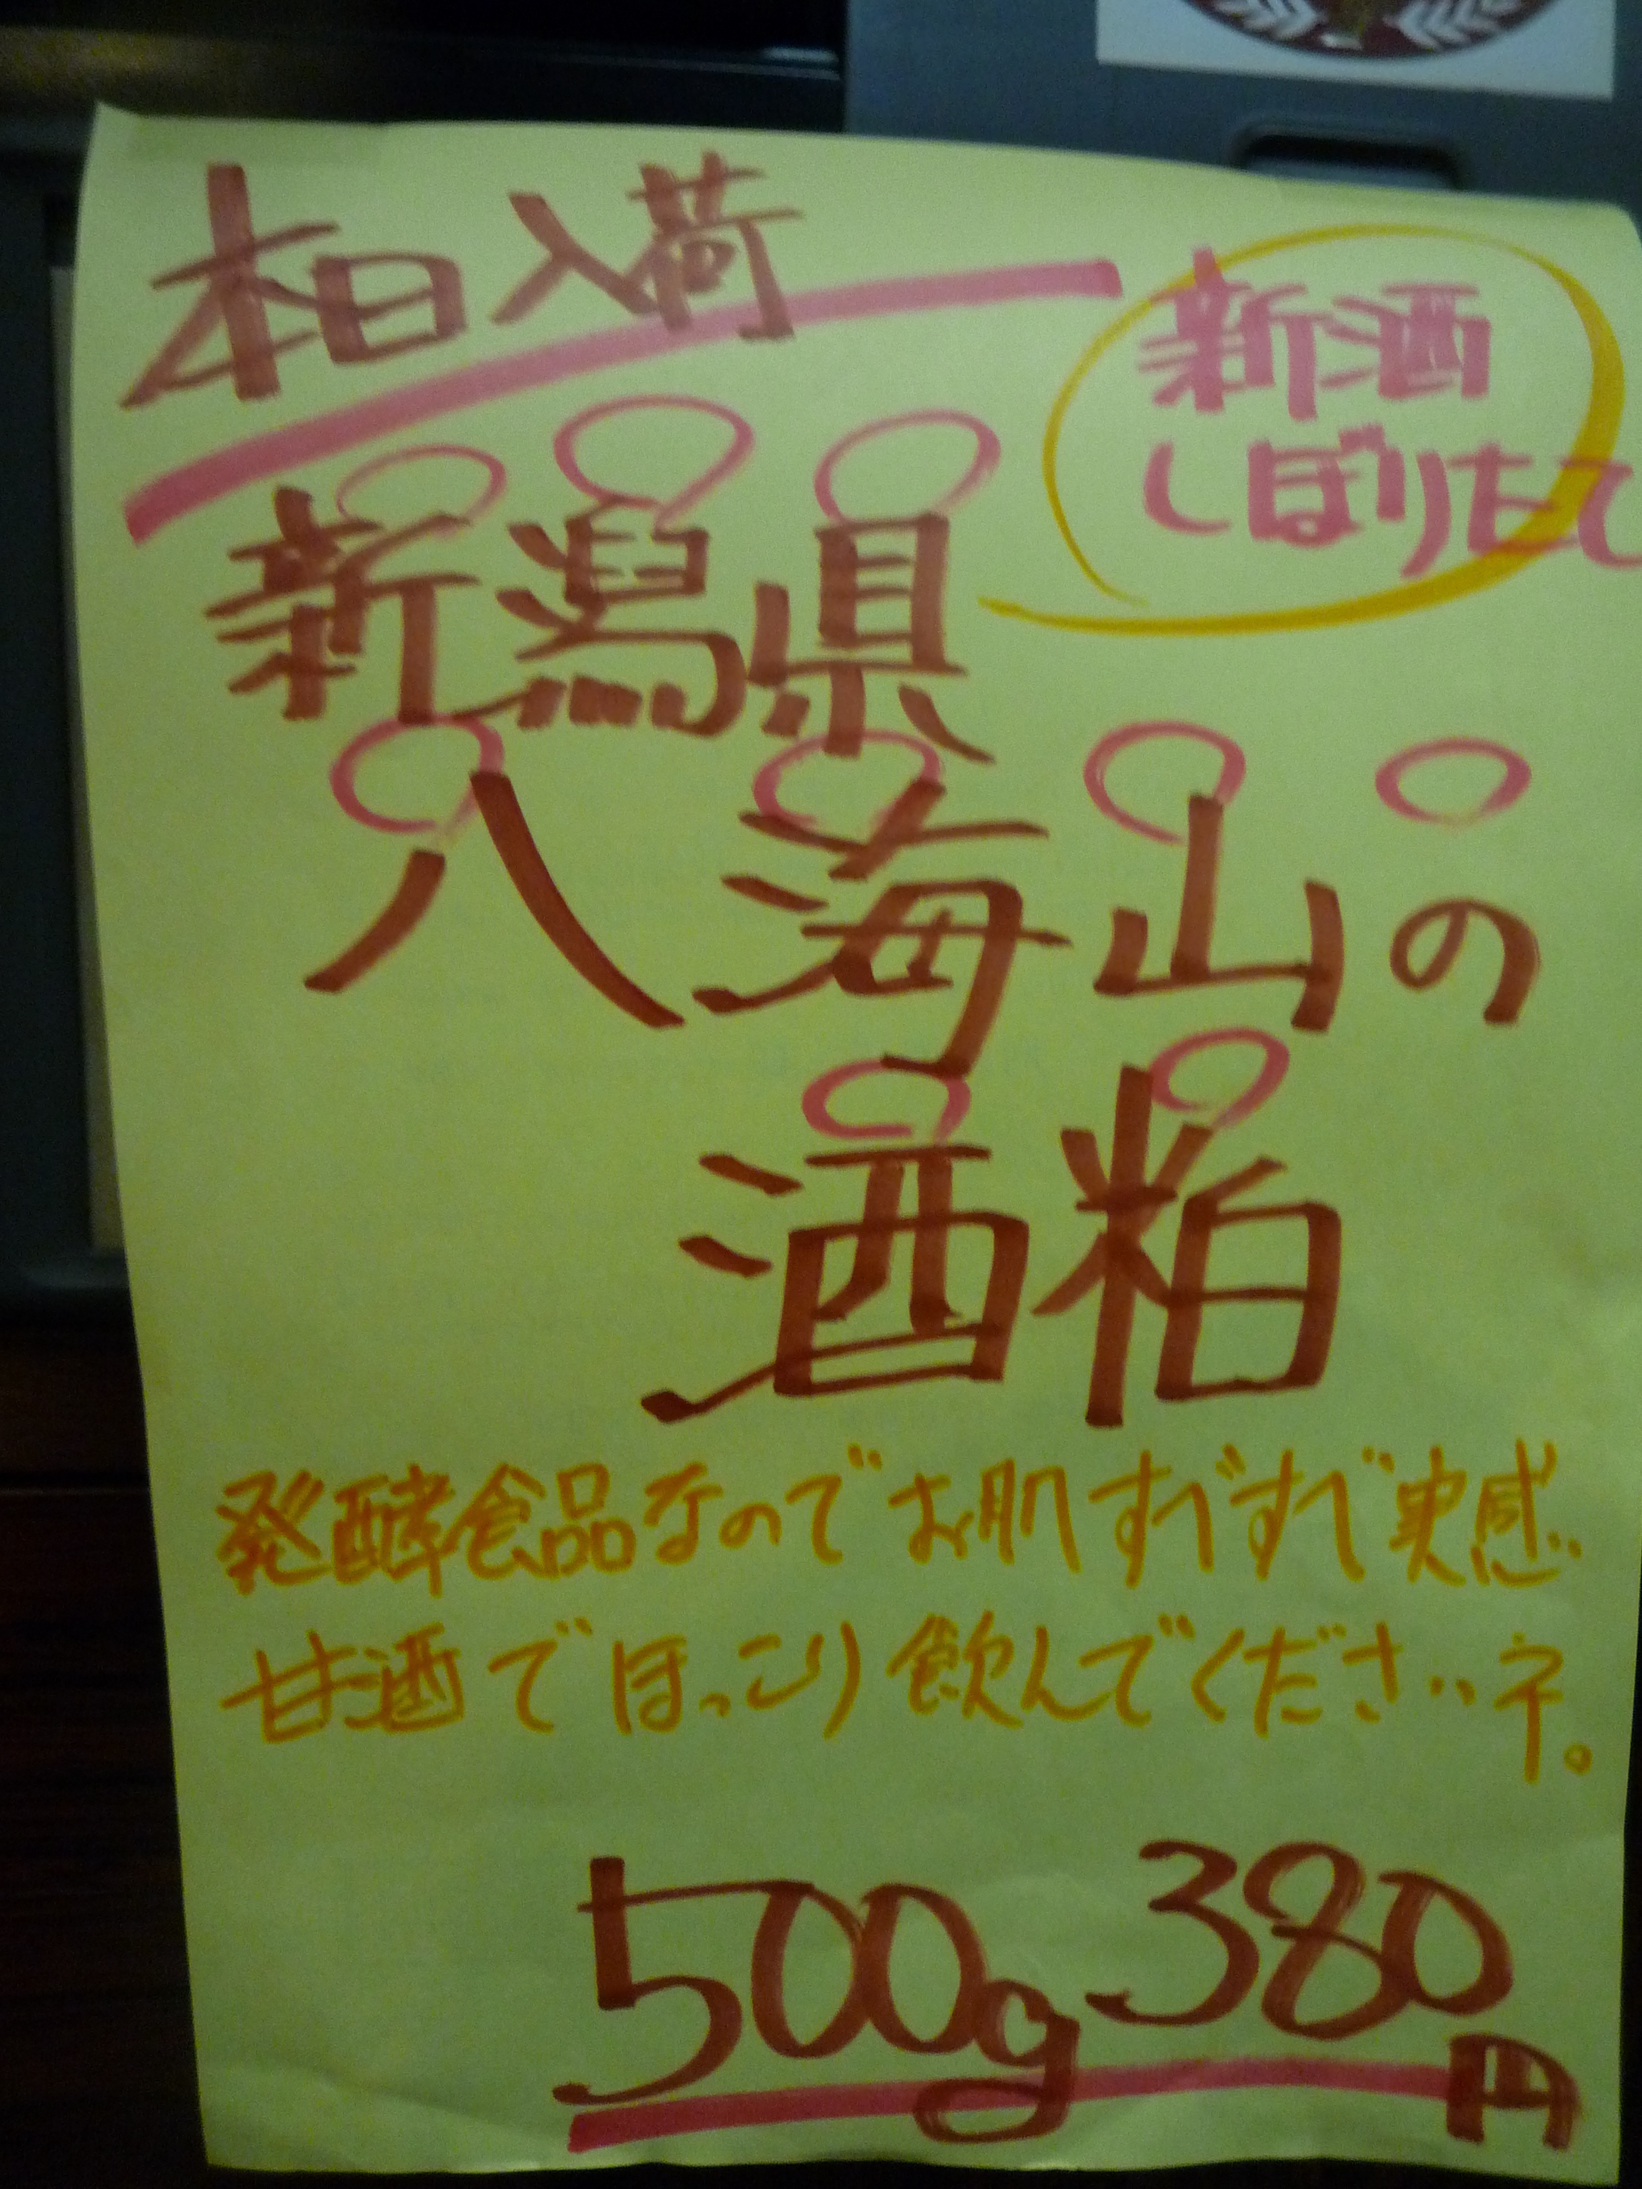 本日入荷
新酒
しぼりたて
新潟県
八海山の
酒粕
発酵食品なのでお肌すべすべ実感
甘酒でほっこり飲んでくださいネ。
500g 380円